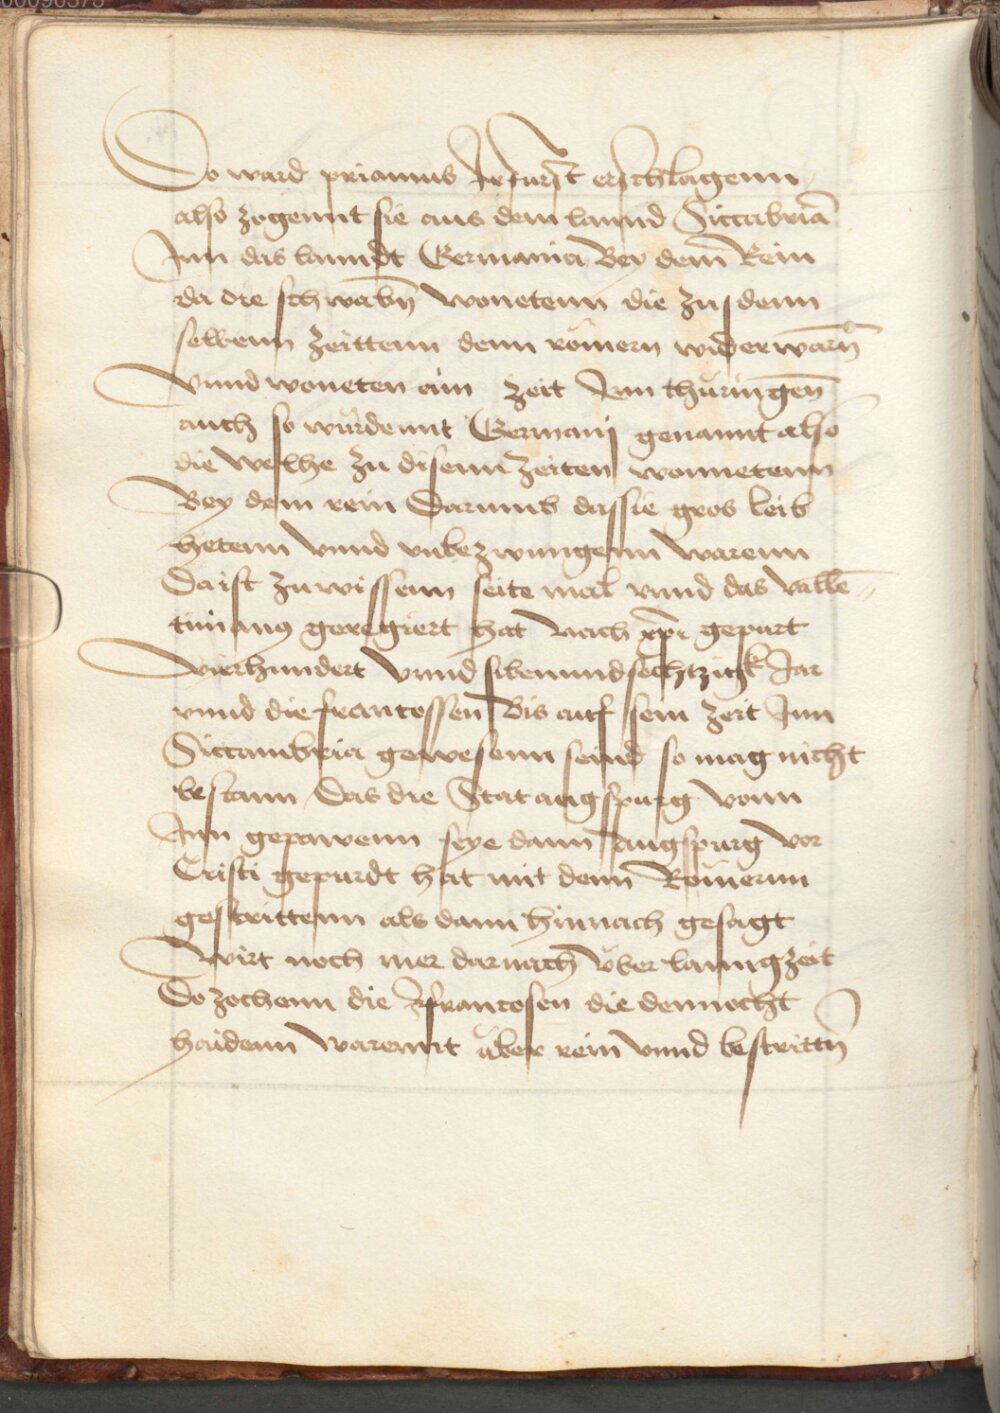 00090373
Do ward priamus Ir furst erschlagenn
also zogennt sie aus dem lannd Siccabriā
Inn das lanndt Germania Bey dem Rein
da die schwabn̄ wonetenn die zu denn
selbenn zeittenn denn römern widerwarn̄
Vnnd woneten ain zeit Inn thüringen̄
auch so würdennt Germanj genannt also
die welhe zu disenn zeiten wonnetenn
Bey dem rein Darumb das sie gros leib
hetenn vnnd vnbezwungenn warenn
Da ist zu wissenn seite mal vnnd das valle͂
tinianus geregiert hat nach xp̄i gepurt
vierhundert vnnd sibenundsechtzigk Jar
vnnd die francossen Bis auf sein zeit Inn
Siccambria gewesenn seind so mag nicht
bestann Das die Stat augspurg vonn
Inn gepawenn seye dann augspurg vor
Cristi gepurdt hat mit denn Römernn
gestrittenn als dann hinnach gesagt
Wirt noch mer darnach vber lanngzeit
Do zochenn die francosen die dennocht
haidenn warennt über rein vnnd bestrittn̄